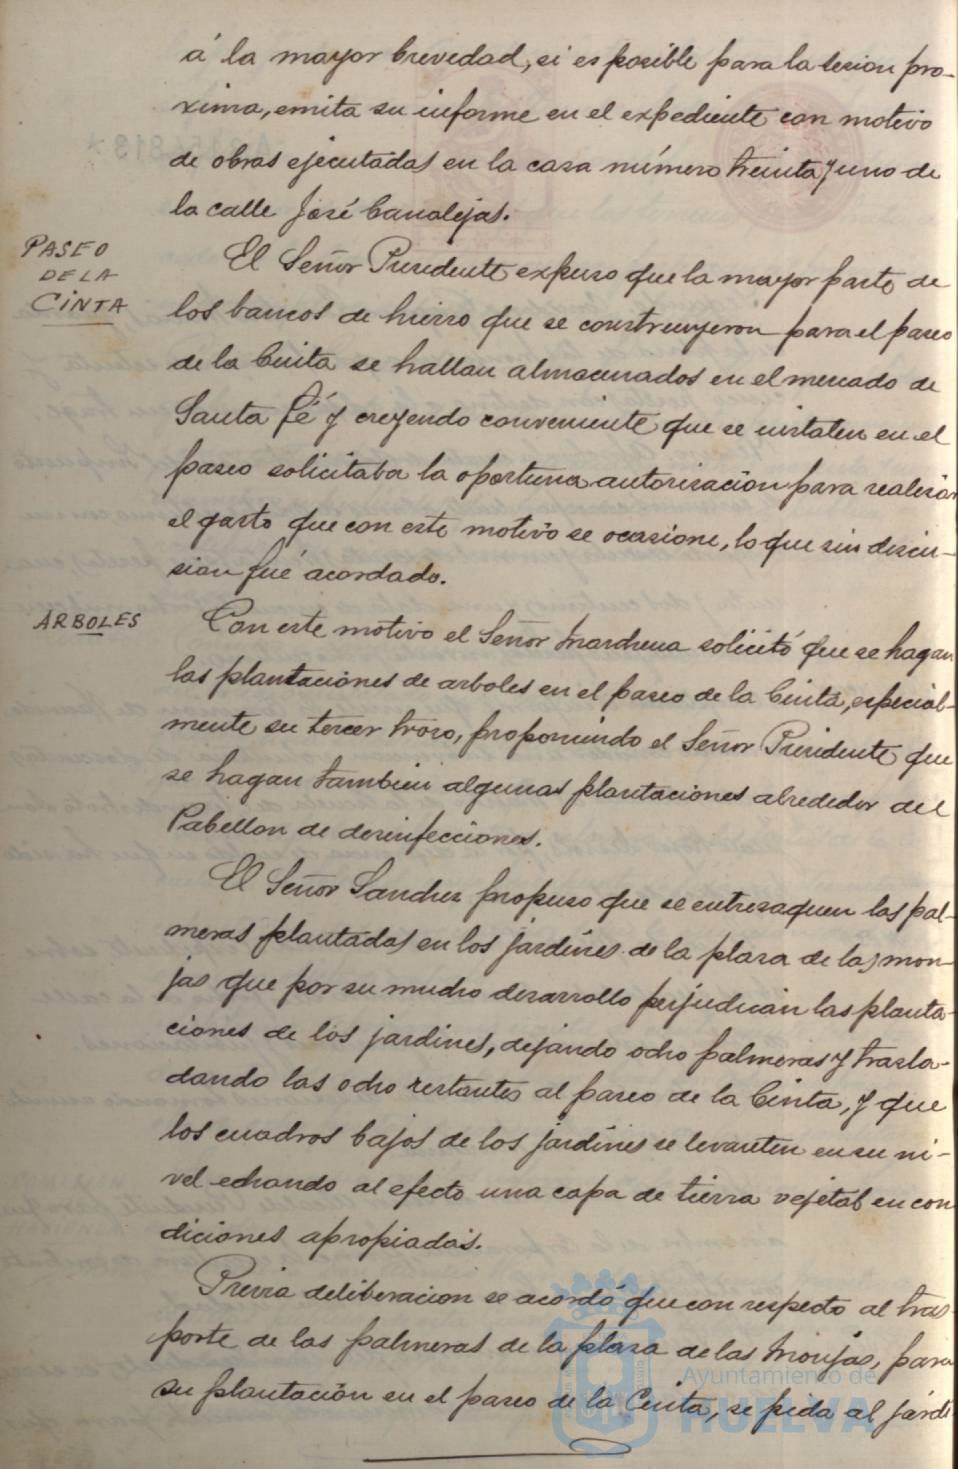 á la mayor brevedad, si es posible para la sesion pro-
xima, emita su informe en el expediente con motivo
de obras ejecutadas en la casa número treinta y uno de
la calle José Canalejas.
PASEO
DE LA
CINTA
El Señor Presidente expuso que la mayor parte de
los bancos de hierro que se construyeron para el paseo
de la Cinta se hallan almacenados en el mercado de
Santa Fé y creyendo conveniente que se instalen en el
paseo solicitaba la oportuna autorizacion para realizar
el gasto que con este motivo se ocasione, lo que sin discu-
sion fué acordado.
ARBOLES
Con este motivo el Señor Marchena solicitó que se hagan
las plantaciones de arboles en el paseo de la Cinta, especial-
mente su tercer trozo, proponiendo el Señor Presidente que
se hagan tambien algunas plantaciones alrededor del
Pabellon de desinfecciones.
El Señor Sanchez propuso que se entresaquen las pal-
meras plantadas en los jardines de la plaza de las mon-
jas que por su mucho desarrollo perjudican las planta-
ciones de los jardines, dejando ocho palmeras y trasla-
dando las ocho restantes al paseo de la Cinta, y que
los cuadros bajos de los jardines se levanten en su ni-
vel echando al efecto una capa de tierra vejetal en con
diciones apropiadas.
Previa deliberacion se acordó que con respecto al tras-
porte de las palmeras de la plaza de las Monjas, para
su plantación en el paseo de la Cinta, se pida al jardi
Ayuntamiento de
HUELVA